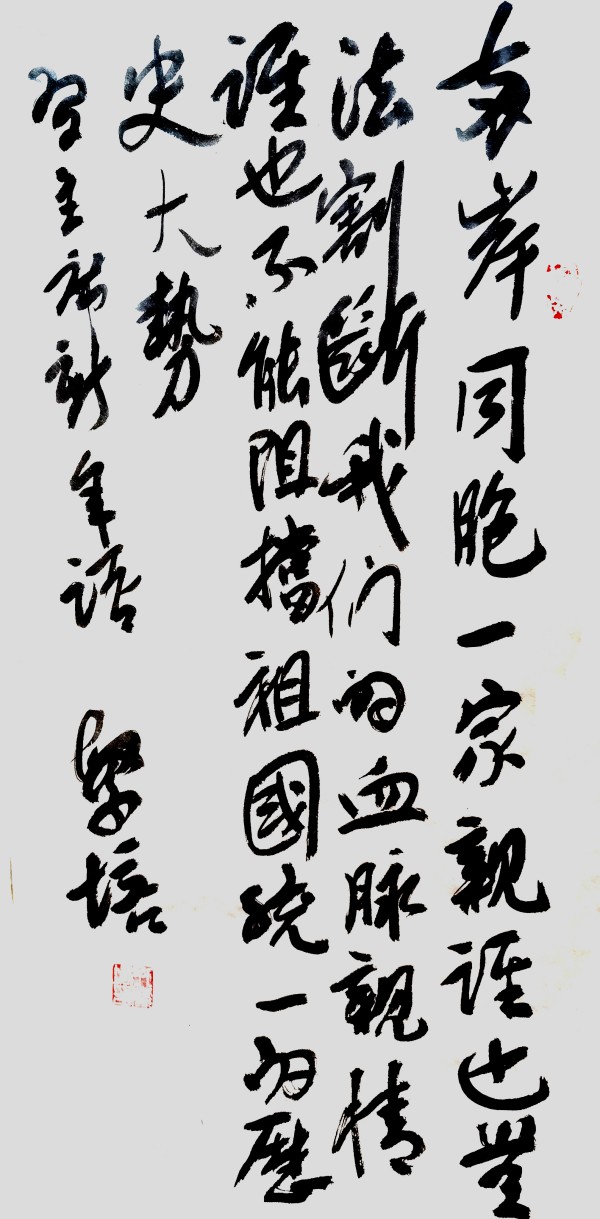 两岸同胞一家親誰也無
法割斷我们的血脉親情
誰也不能阻擋祖國统一的歷
史大勢
習主席新年語
學培